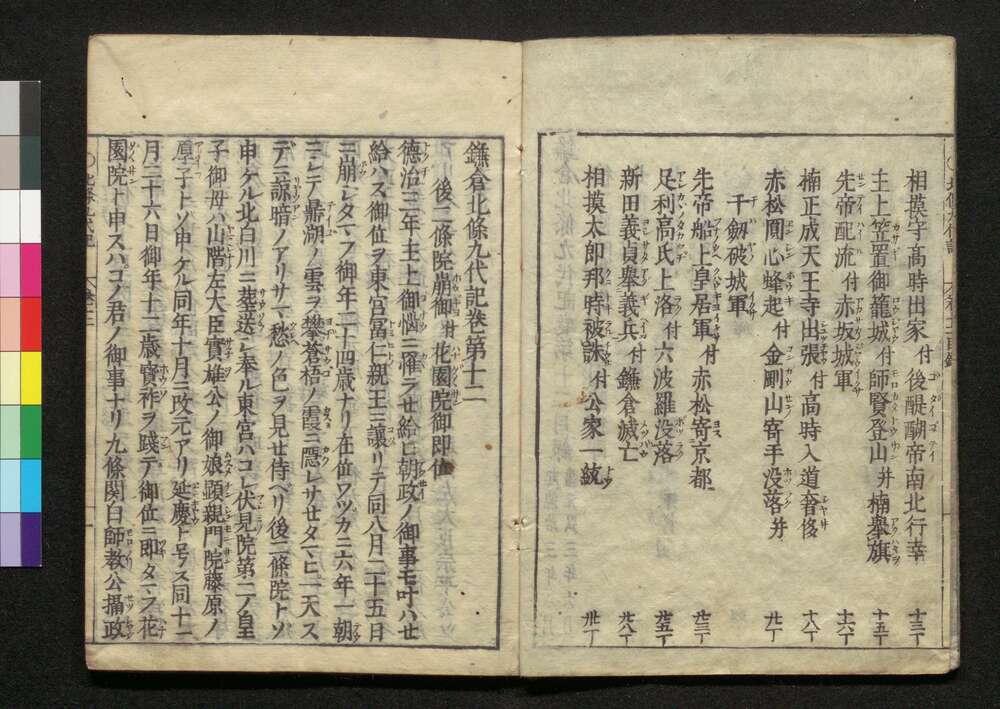 相摸守高時出家付後醍醐帝南北行幸 十三丁
主上笠置御籠城付師賢登山并楠擧旗 十五丁
先帝配流付赤坂城軍 十六丁
楠正成天王寺出張付高時入道奢侈 十八丁
赤松圓心蜂起付金剛山寄手没落并
千劔破城軍 廿一丁
先帝船上皇居軍付赤松寄京都 廿三丁
足利高氏上洛付六波羅没落 廿五丁
新田義貞擧義兵付鎌倉滅亡 廿八丁
相摸太郎邦時被誅付公家一統 卅一丁
鎌倉北條九代記卷第十二
後二條院崩御付花園院御即位
德治三年主上御惱ニ罹ラセ給ヒ朝政ノ御事モ叶ハセ
給ハス御位ヲ東宮富仁親王ニ讓リテ同八月二十五日
ニ崩シタマフ御年二十四歳ナリ在位ワツカニ六年一朝
ニシテ鼎湖ノ雲ヲ攀蒼梧ノ霞ニ隠レサセタマヒ一天ス
デニ諒暗ノアリサマ愁ノ色ヲ見セ侍ベリ後二條院トソ
申ケル北白川ニ葬送シ奉ル東宮ハコレ伏見院第二ノ皇
子御母ハ山階左大臣實雄公ノ御娘顕親門院藤原ノ
季子トソ申ケル同年十月ニ改元アリ延慶ト号ス同十一
月二十六日御年十二歳寳祚ヲ踐テ御位ニ即タマフ花
園院ト申スハコノ君ノ御事ナリ九條関白師教公攝政